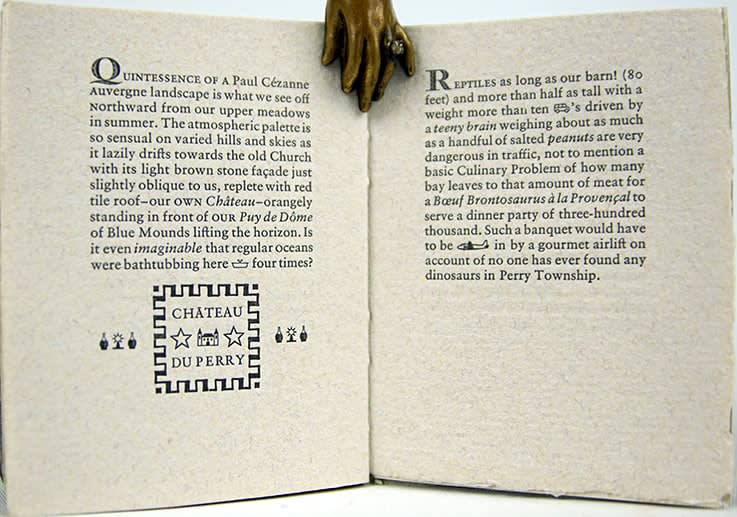 QUINTESSENCE OF A Paul Cézanne
Auvergne landscape is what we see off
Northward from our upper meadows
in summer. The atmospheric palette is
so sensual on varied hills and skies as
it lazily drifts towards the old Church
with its light brown stone façade just
slightly oblique to us, replete with red
tile roof–our OWN Château–orangely
standing in front of OUR Puy de Dôme
of Blue Mounds lifting the horizon. Is
it even imaginable that regular oceans
were bathtubbing here four times?
CHÂTEAU
DU PERRY
REPTILES as long as our barn! (80
feet) and more than half as tall with a
weight more than ten 's driven by
a teeny brain weighing about as much
as a handful of salted peanuts are very
dangerous in traffic, not to mention a
basic Culinary Problem of how many
bay leaves to that amount of meat for
a Bœuf Brontosaurus à la Provençal to
serve a dinner party of three-hundred
thousand. Such a banquet would have
to be in by a gourmet airlift on
account of no one has ever found any
dinosaurs in Perry Township.